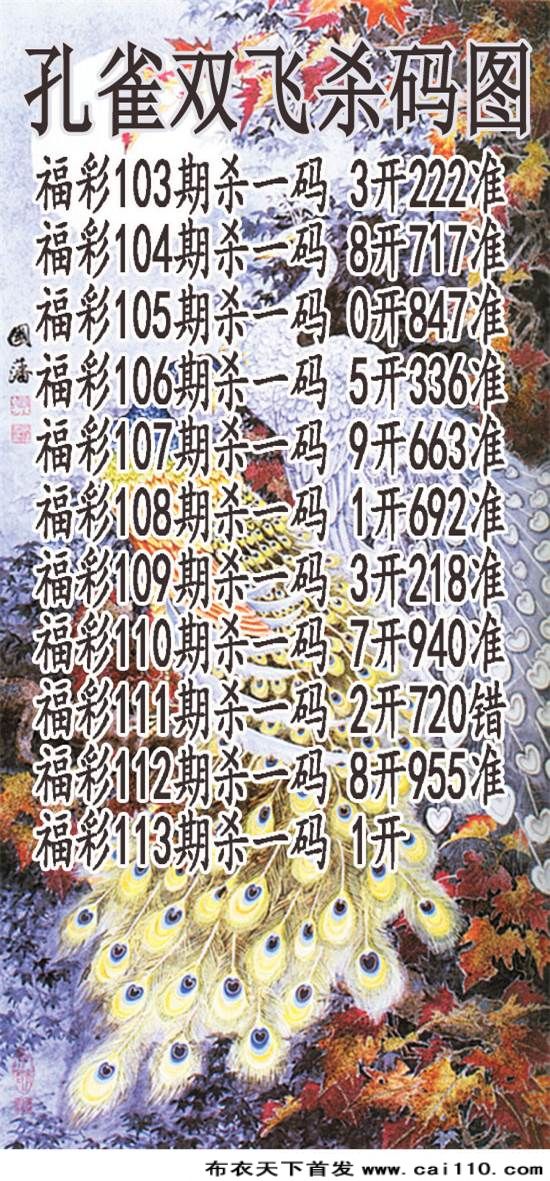 孔雀双飞杀码图
福彩103期杀一码 3开222准
福彩104期杀一码 8开717准
福彩105期杀一码 0开847准
福彩106期杀一码 5开336准
福彩107期杀一码 9开663准
福彩108期杀一码 1开692准
福彩109期杀一码 3开218准
福彩110期杀一码 7开940准
福彩111期杀一码 2开720错
福彩112期杀一码 8开955准
福彩113期杀一码 1开
國藩
布衣天下首发 www.cai110.com